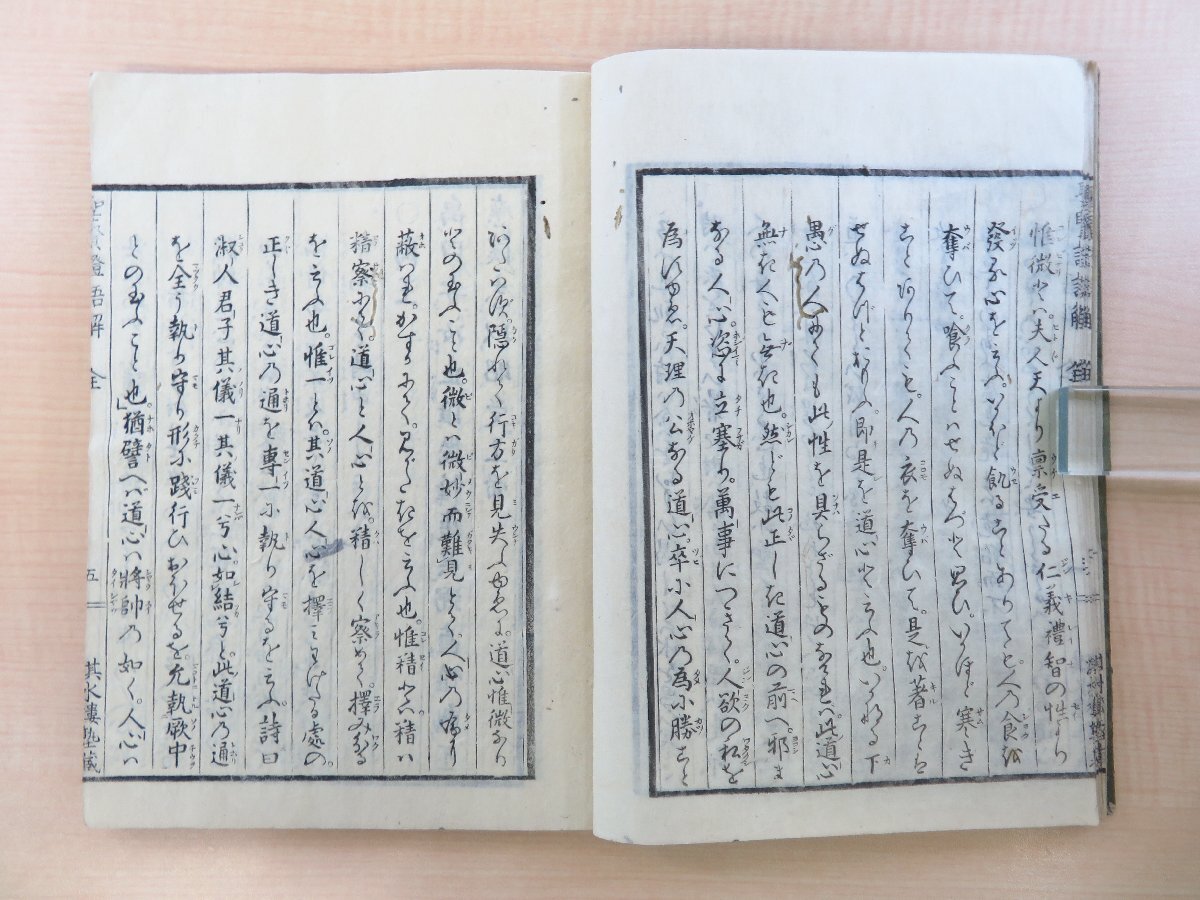 惟微とハ夫人天より稟受たる仁義禮智の性より
發る心をいふいかほど飢ることありても人の食を
奪ひて喰ふことハせぬはづと思ひいかほど寒き
ことありても人の衣を奪ひて是を著ることは
せぬはづとおもふ即是を道心といふ也いかなる下
愚の人にても此性を具らざるものなければ此道心
無き人も無き也然ども此正しき道心の前へ邪ま
なる人心恣に立塞り萬事につきて人欲の私を
為すゆゑ天理の公なる道心卒に人心の為に勝こと
隠れて行方を見失ふゆゑに道心惟微なり
とのたまふこと也微とハ微妙而難見とて人心の為に
蔽ハれかすかにて見がたきを云ふ也惟精とハ精ハ
精察にて道心と人心とを精しく察めて擇みわくる
を云ふ也惟一とハ其道心人心を擇みわけたる處の
正しき道心の通を專一に執り守るを云ふ詩曰
淑人君子其儀一其儀一兮心如結兮と此道心の通
を全う執り守り形に踐行ひおほせるを允執厥中
とのたまふこと也猶譬へバ道心ハ將帥の如く人心ハ
聖賢證語解 全 五 其水樓塾藏